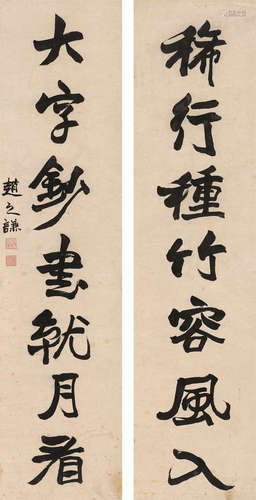 稀行種竹容風入
大字鈔書就月看
趙之謙